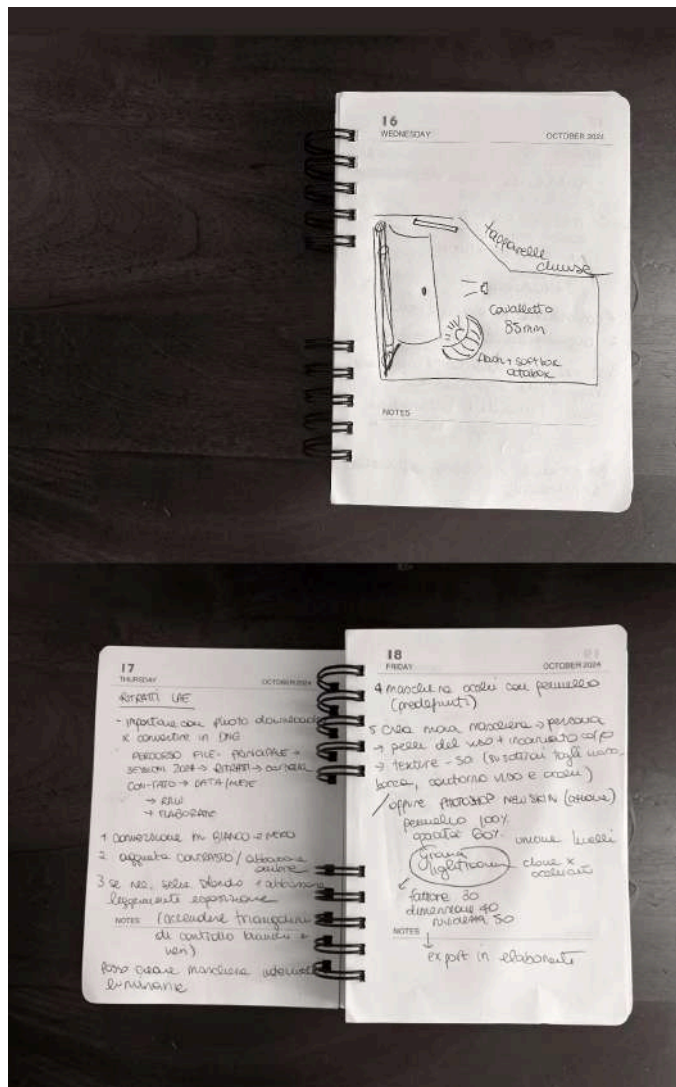 16
WEDNESDAY OCTOBER 2024
tapparelle
chiuse
cavalletto
85mm
flash + softbox
octabox
NOTES
17
THURSDAY OCTOBER 2024
RITRATTI LAE
- importare con photo downloader
x convertire in DNG
PERCORSO FILE - PRINCIPALE →
SESSIONI 2024 → RITRATTI → cartella
CONTATO → DATA/MESE
→ RAW
→ ELABORATE
1 conversione in BIANCO e NERO
2 aggiusta CONTRASTO / abbassare
ombre
3 se nec. selez. sfondo + abbassare
leggermente esposizione
NOTES (accendere triangolini
di controllo bianchi e
neri)
Posso creare maschera
luminanza
18
FRIDAY OCTOBER 2024
4 maschera occhi con pennello
(predefiniti)
5 Crea nuova maschera → persona
→ pelle del viso + incarnato corpo
→ texture - 50 (su sottrai togli naso,
bocca, contorno viso e occhi)
/ oppure PHOTOSHOP NEW SKIN (azione)
pennello 100%
opacità 60%
unione livelli
grana
lightroom
clone x
fattore 30
dimensione 40
50
NOTES
↓
export in elaborate